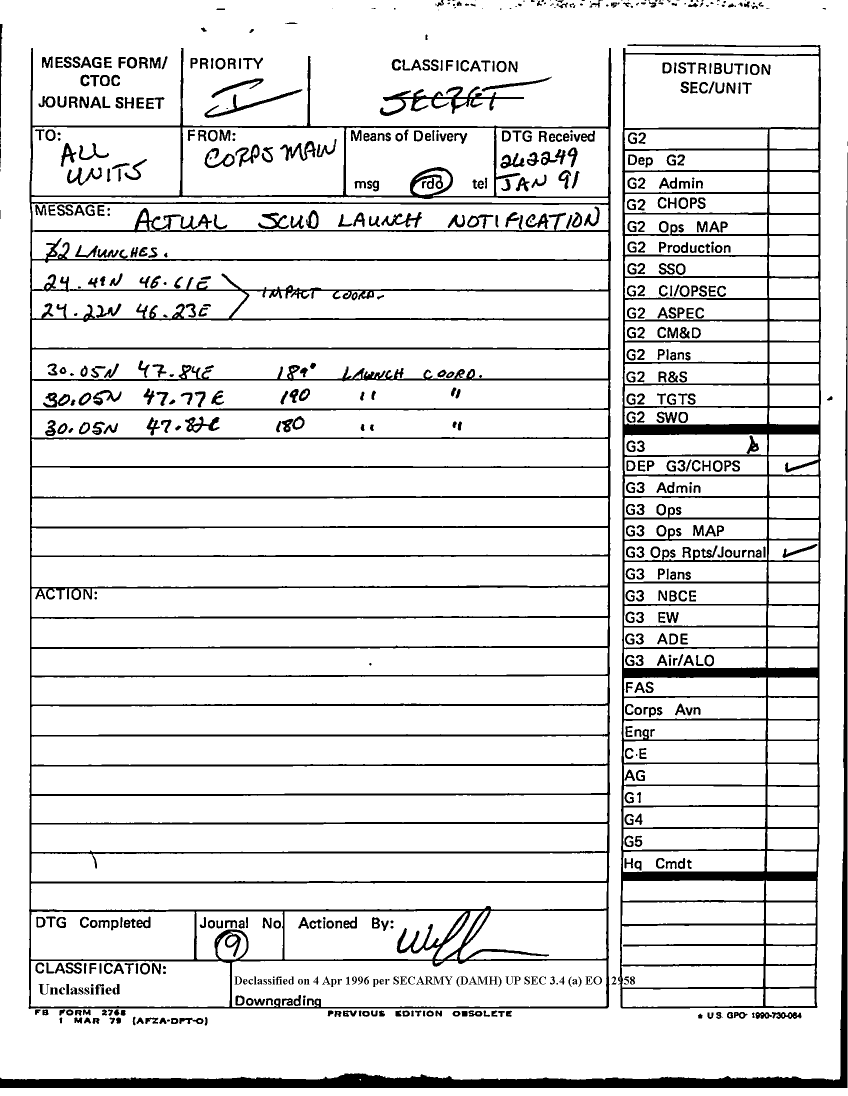 MESSAGE FORM/
CTOC
JOURNAL SHEET
PRIORITY
I
CLASSIFICATION
SECRET
TO:
ALL
UNITS
FROM:
CORPS MAIN
Means of Delivery
msg rdo tel
DTG Received
242249
JAN 91
MESSAGE: ACTUAL SCUD LAUNCH NOTIFICATION
2 LAUNCHES.
24.49N 46.61E
IMPACT COORD.
24.22N 46.23E
30.05N 47.84E 189° LAUNCH COORD.
30.05N 47.77E 190 " "
30.05N 47.82E 180 " "
ACTION:
DTG Completed
Journal No.
9
Actioned By:
CLASSIFICATION:
Unclassified
Declassified on 4 Apr 1996 per SECARMY (DAMH) UP SEC 3.4 (a) EO 12958
Downgrading
FB FORM 2768
1 MAR 79 (AFZA-DPT-O)
PREVIOUS EDITION OBSOLETE
DISTRIBUTION
SEC/UNIT
G2
Dep G2
G2 Admin
G2 CHOPS
G2 Ops MAP
G2 Production
G2 SSO
G2 CI/OPSEC
G2 ASPEC
G2 CM&D
G2 Plans
G2 R&S
G2 TGTS
G2 SWO
G3
DEP G3/CHOPS ✓
G3 Admin
G3 Ops
G3 Ops MAP
G3 Ops Rpts/Journal ✓
G3 Plans
G3 NBCE
G3 EW
G3 ADE
G3 Air/ALO
FAS
Corps Avn
Engr
C-E
AG
G1
G4
G5
Hq Cmdt
* U.S. GPO: 1990-730-084